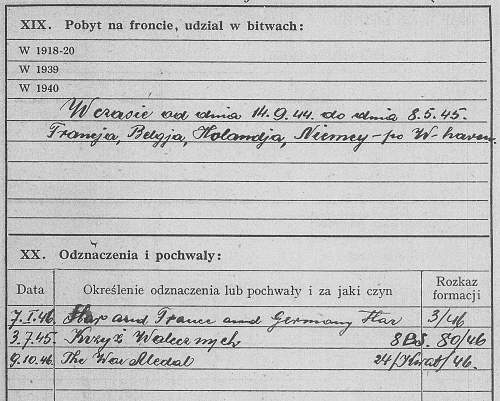 XIX. Pobyt na froncie, udział w bitwach:
W 1918-20
W 1939
W 1940
W czasie od dnia 14.9.44 do dnia 8.5.45.
Francja, Belgja, Holandja, Niemcy - po W-haven.
XX. Odznaczenia i pochwały:
Data Określenie odznaczenia lub pochwały i za jaki czyn Rozkaz formacji
7.I.46. Star and France and Germany Star 3/46
3.7.45. Krzyż Walecznych 80/46
9.10.46. The War Medal 24/Kwat/46.